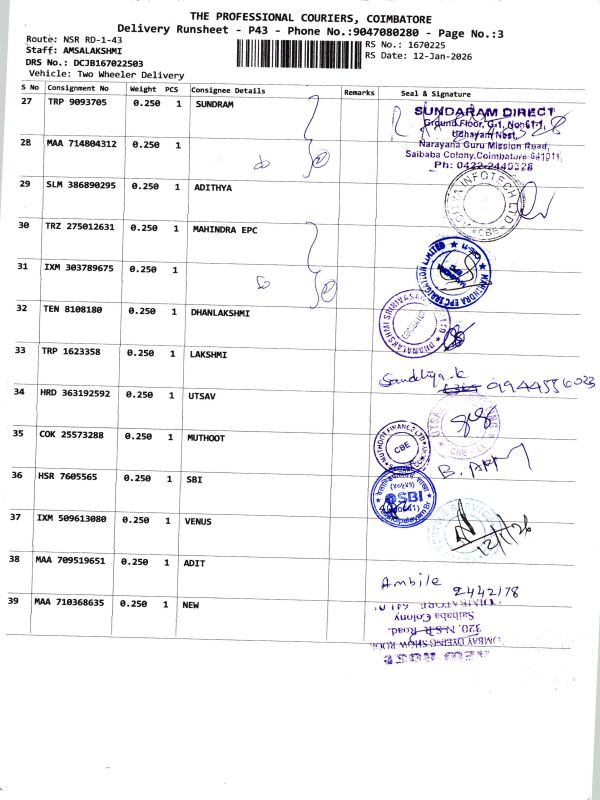 THE PROFESSIONAL COURIERS, COIMBATORE
Delivery Runsheet - P43 - Phone No.:9047080280 - Page No.:3
Route: NSR RD-1-43
RS No.: 1670225
Staff: AMSALAKSHMI
RS Date: 12-Jan-2026
DRS No.: DCJB167022503
Vehicle: Two Wheeler Delivery
S No Consignment No Weight PCS Consignee Details Remarks Seal & Signature
27 TRP 9093705 0.250 1 SUNDRAM
SUNDARAM DIRECT
Ground Floor, G-1, No:61-1,
Udhayam Nest,
Narayana Guru Mission Road,
Saibaba Colony,Coimbatore-641011,
Ph: 0422-2440328
28 MAA 714804312 0.250 1
29 SLM 386890295 0.250 1 ADITHYA
INFOTECH LTD
CBE
30 TRZ 275012631 0.250 1 MAHINDRA EPC
MAHINDRA EPC IRRIGATION LIMITED
31 IXM 303789675 0.250 1
32 TEN 8108180 0.250 1 DHANLAKSHMI
DHANALAKSHMI SRINIVASAN
33 TRP 1623358 0.250 1 LAKSHMI
Sandhiya.k
9944556023
34 HRD 363192592 0.250 1 UTSAV
35 COK 25573288 0.250 1 MUTHOOT
MUTHOOT FINANCE LTD
CBE
36 HSR 7605565 0.250 1 SBI
SBI
37 IXM 509613080 0.250 1 VENUS
12/1/26
38 MAA 709519651 0.250 1 ADIT
Ambile 2442178
39 MAA 710368635 0.250 1 NEW
Saibaba Colony
320, N.S.R. Road,